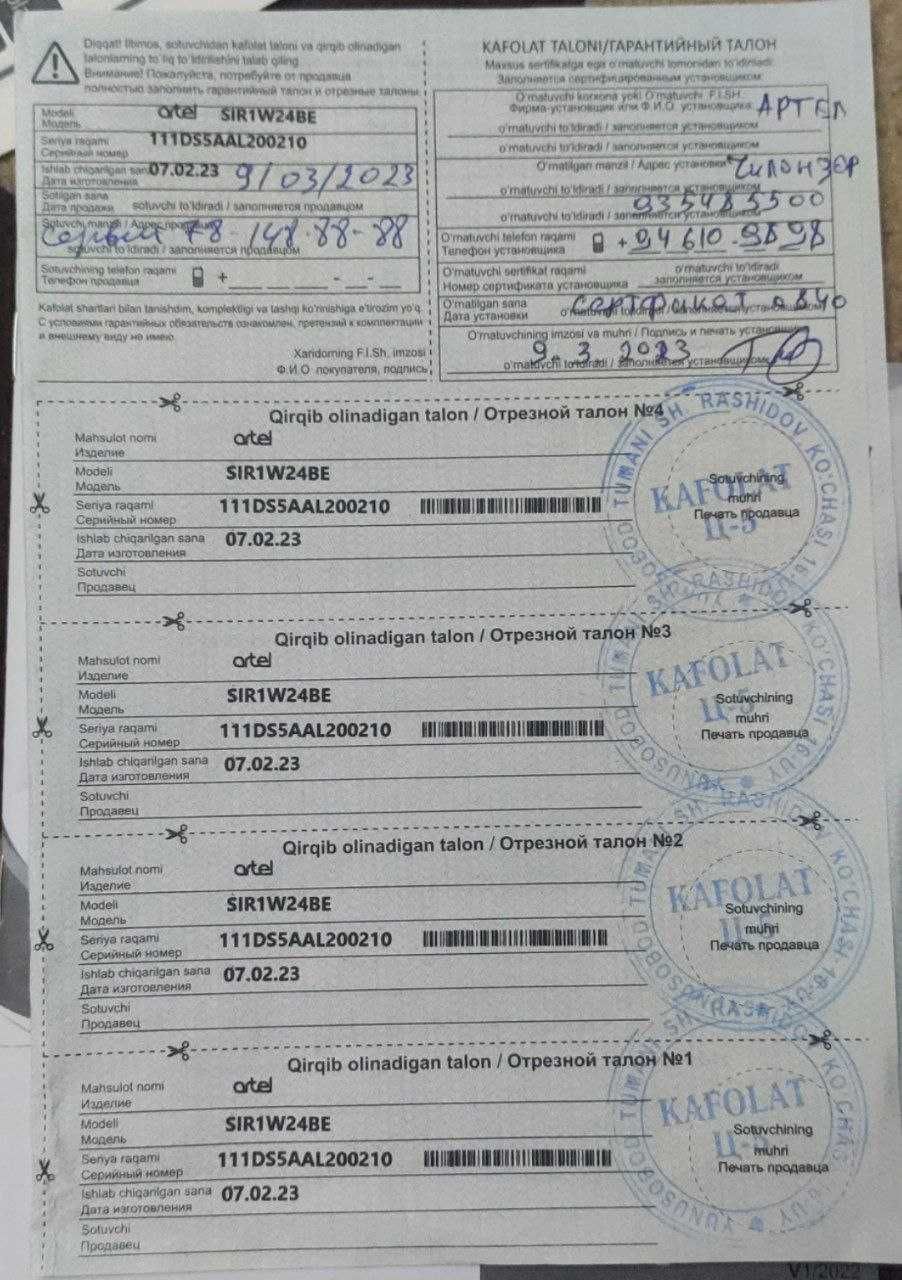 Diqqat! Iltimos, sotuvchidan kafolat taloni va qirqib olinadigan
talonlarning to'liq to'ldirilishini talab qiling.
Внимание! Пожалуйста, потребуйте от продавца
полностью заполнить гарантийный талон и отрезные талоны
Modeli
Модель
artel SIR1W24BE
Seriya raqami
Серийный номер
111DS5AAL200210
Ishlab chiqarilgan sana
Дата изготовления
07.02.23 9/03/2023
Sotilgan sana
Дата продажи
sotuvchi to'ldiradi / заполняется продавцом
Sotuvchi manzili / Адрес продавца
78-148-88-88
sotuvchi to'ldiradi / заполняется продавцом
Sotuvchining telefon raqami
Телефон продавца
+
Kafolat shartlari bilan tanishdim, komplektligi va tashqi ko'rinishiga e'tirozim yo'q.
С условиями гарантийных обязательств ознакомлен, претензий к комплектации
и внешнему виду не имею.
Xaridorning F.I.Sh. imzosi
Ф.И.О покупателя, подпись
KAFOLAT TALONI/ГАРАНТИЙНЫЙ ТАЛОН
Maxsus sertifikatga ega o'rnatuvchi tomonidan to'ldiriladi
Заполняется сертифицированным установщиком
O'rnatuvchi korxona yoki O'rnatuvchi F.I.SH.
Фирма-установщик или Ф.И.О. установщика
АРТЕЛ
o'rnatuvchi to'ldiradi / заполняется установщиком
o'rnatuvchi to'ldiradi / заполняется установщиком
O'rnatilgan manzil / Адрес установки
Чилонзор
o'rnatuvchi to'ldiradi / заполняется установщиком
935485500
o'rnatuvchi to'ldiradi / заполняется установщиком
O'rnatuvchi telefon raqami
Телефон установщика
+94 610-9898
O'rnatuvchi sertifikat raqami
Номер сертификата установщика
o'rnatuvchi to'ldiradi
заполняется установщиком
O'rnatilgan sana
Дата установки
сертфикат
o'rnatuvchi to'ldiradi / заполняется установщиком
O'rnatuvchining imzosi va muhri / Подпись и печать установщика
9.3 2023
o'rnatuvchi to'ldiradi / заполняется установщиком
Qirqib olinadigan talon / Отрезной талон №4
Mahsulot nomi
Изделие
artel
Modeli
Модель
SIR1W24BE
Seriya raqami
Серийный номер
111DS5AAL200210
Ishlab chiqarilgan sana
Дата изготовления
07.02.23
Sotuvchi
Продавец
YUNUSOBOD TUMANI SH. RASHIDOV KO'CHASI 16-UY
KAFOLAT
Ц-5
Sotuvchining
muhri
Печать продавца
Qirqib olinadigan talon / Отрезной талон №3
Mahsulot nomi
Изделие
artel
Modeli
Модель
SIR1W24BE
Seriya raqami
Серийный номер
111DS5AAL200210
Ishlab chiqarilgan sana
Дата изготовления
07.02.23
Sotuvchi
Продавец
YUNUSOBOD TUMANI SH. RASHIDOV KO'CHASI 16-UY
KAFOLAT
Ц-5
Sotuvchining
muhri
Печать продавца
Qirqib olinadigan talon / Отрезной талон №2
Mahsulot nomi
Изделие
artel
Modeli
Модель
SIR1W24BE
Seriya raqami
Серийный номер
111DS5AAL200210
Ishlab chiqarilgan sana
Дата изготовления
07.02.23
Sotuvchi
Продавец
YUNUSOBOD TUMANI SH. RASHIDOV KO'CHASI 16-UY
KAFOLAT
Ц-5
Sotuvchining
muhri
Печать продавца
Qirqib olinadigan talon / Отрезной талон №1
Mahsulot nomi
Изделие
artel
Modeli
Модель
SIR1W24BE
Seriya raqami
Серийный номер
111DS5AAL200210
Ishlab chiqarilgan sana
Дата изготовления
07.02.23
Sotuvchi
Продавец
YUNUSOBOD TUMANI SH. RASHIDOV KO'CHASI 16-UY
KAFOLAT
Ц-5
Sotuvchining
muhri
Печать продавца
V1/2022